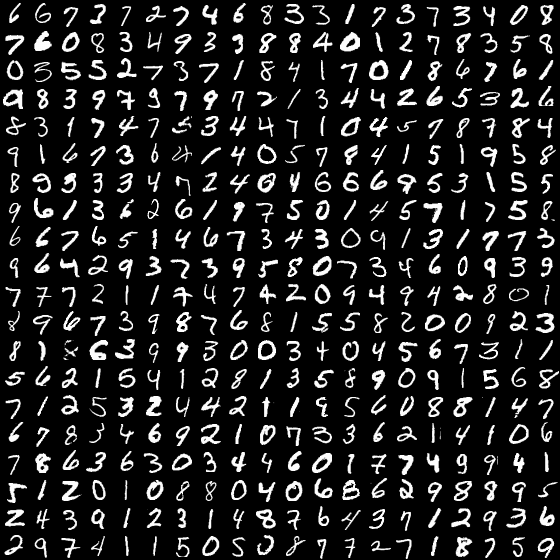 6 6 7 3 7 2 7 4 6 8 3 3 1 7 3 7 3 4 0 8
7 6 0 8 3 4 9 3 3 8 8 4 0 1 2 7 8 3 5 8
0 3 5 5 2 7 3 7 1 8 4 1 7 0 1 8 6 7 6 1
9 8 3 9 7 9 7 9 7 2 1 3 4 4 2 6 5 3 2 6
8 3 1 7 4 7 5 3 4 4 7 1 0 4 5 7 8 7 8 4
9 1 6 7 3 6 4 1 4 0 5 7 8 4 1 5 1 9 5 8
8 9 3 3 3 4 7 2 4 0 4 6 6 6 9 5 3 1 5 5
9 6 1 3 6 2 6 1 9 7 5 0 1 4 5 7 1 7 5 8
6 6 7 6 5 1 4 6 7 3 4 3 0 9 1 3 1 7 7 3
9 6 4 2 9 3 7 3 9 5 8 0 7 3 4 6 0 9 3 9
7 7 7 2 1 1 7 4 7 4 2 0 9 4 9 4 2 8 0 1
8 9 6 7 3 9 8 7 6 8 1 5 5 8 2 0 0 9 2 3
8 1 8 6 3 9 9 3 0 0 3 4 0 4 5 6 7 3 1 1
5 6 2 1 5 4 1 2 8 1 3 5 8 9 0 9 1 5 6 8
7 1 2 5 3 2 4 4 2 1 1 9 5 6 0 8 8 1 4 7
6 7 8 3 4 6 9 2 1 0 7 3 3 6 2 1 4 1 0 6
7 8 6 3 6 3 0 3 4 4 6 0 1 7 7 4 9 9 4 1
5 1 2 0 1 0 8 8 0 4 0 6 8 6 2 9 8 8 9 5
2 4 3 9 1 2 3 1 4 8 7 6 4 3 7 1 2 9 3 6
2 9 7 4 1 1 5 0 5 0 8 7 7 2 7 1 8 2 5 9